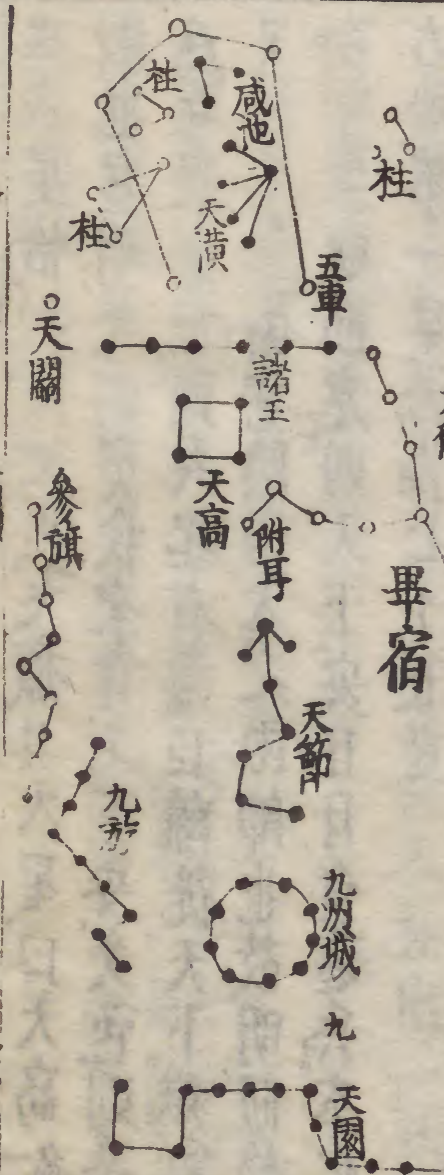 柱
咸池
柱
柱
天潢
五車
天關
諸王
天高
附耳
參旗
畢宿
天節
九斿
九州城
九
天園